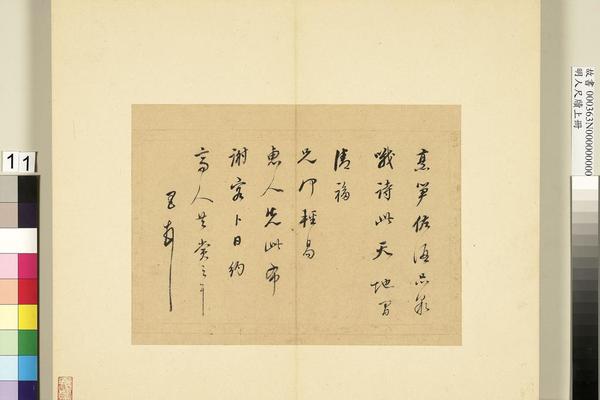 烹笋佐酒品泉
哦詩此天地間
清福
兄何輕易
惠人先此布
謝容卜日約
高人共賞之
故書 000363N000000000
明人尺牘上冊
11